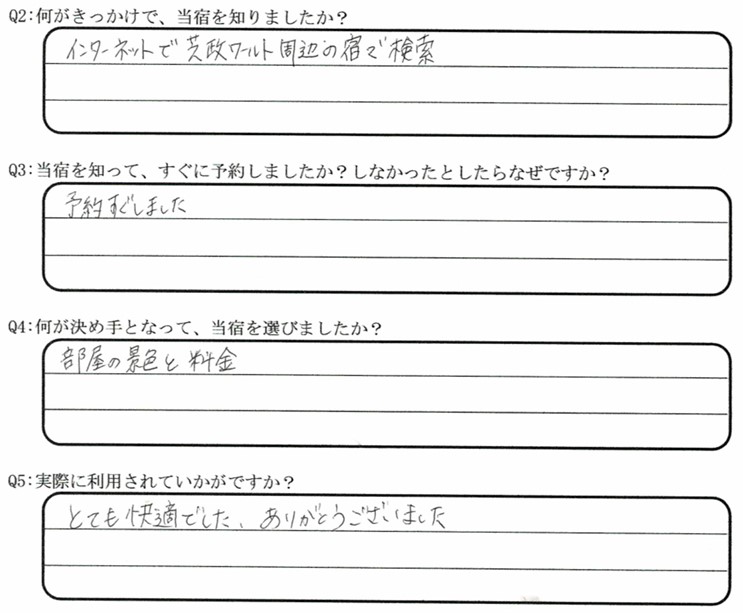 Q2:何がきっかけで、当宿を知りましたか？
インターネットで芝政ワールド周辺の宿で検索
Q3:当宿を知って、すぐに予約しましたか？しなかったとしたらなぜですか？
予約すぐしました
Q4:何が決め手となって、当宿を選びましたか？
部屋の景色と料金
Q5:実際に利用されていかがですか？
とても快適でした、ありがとうございました